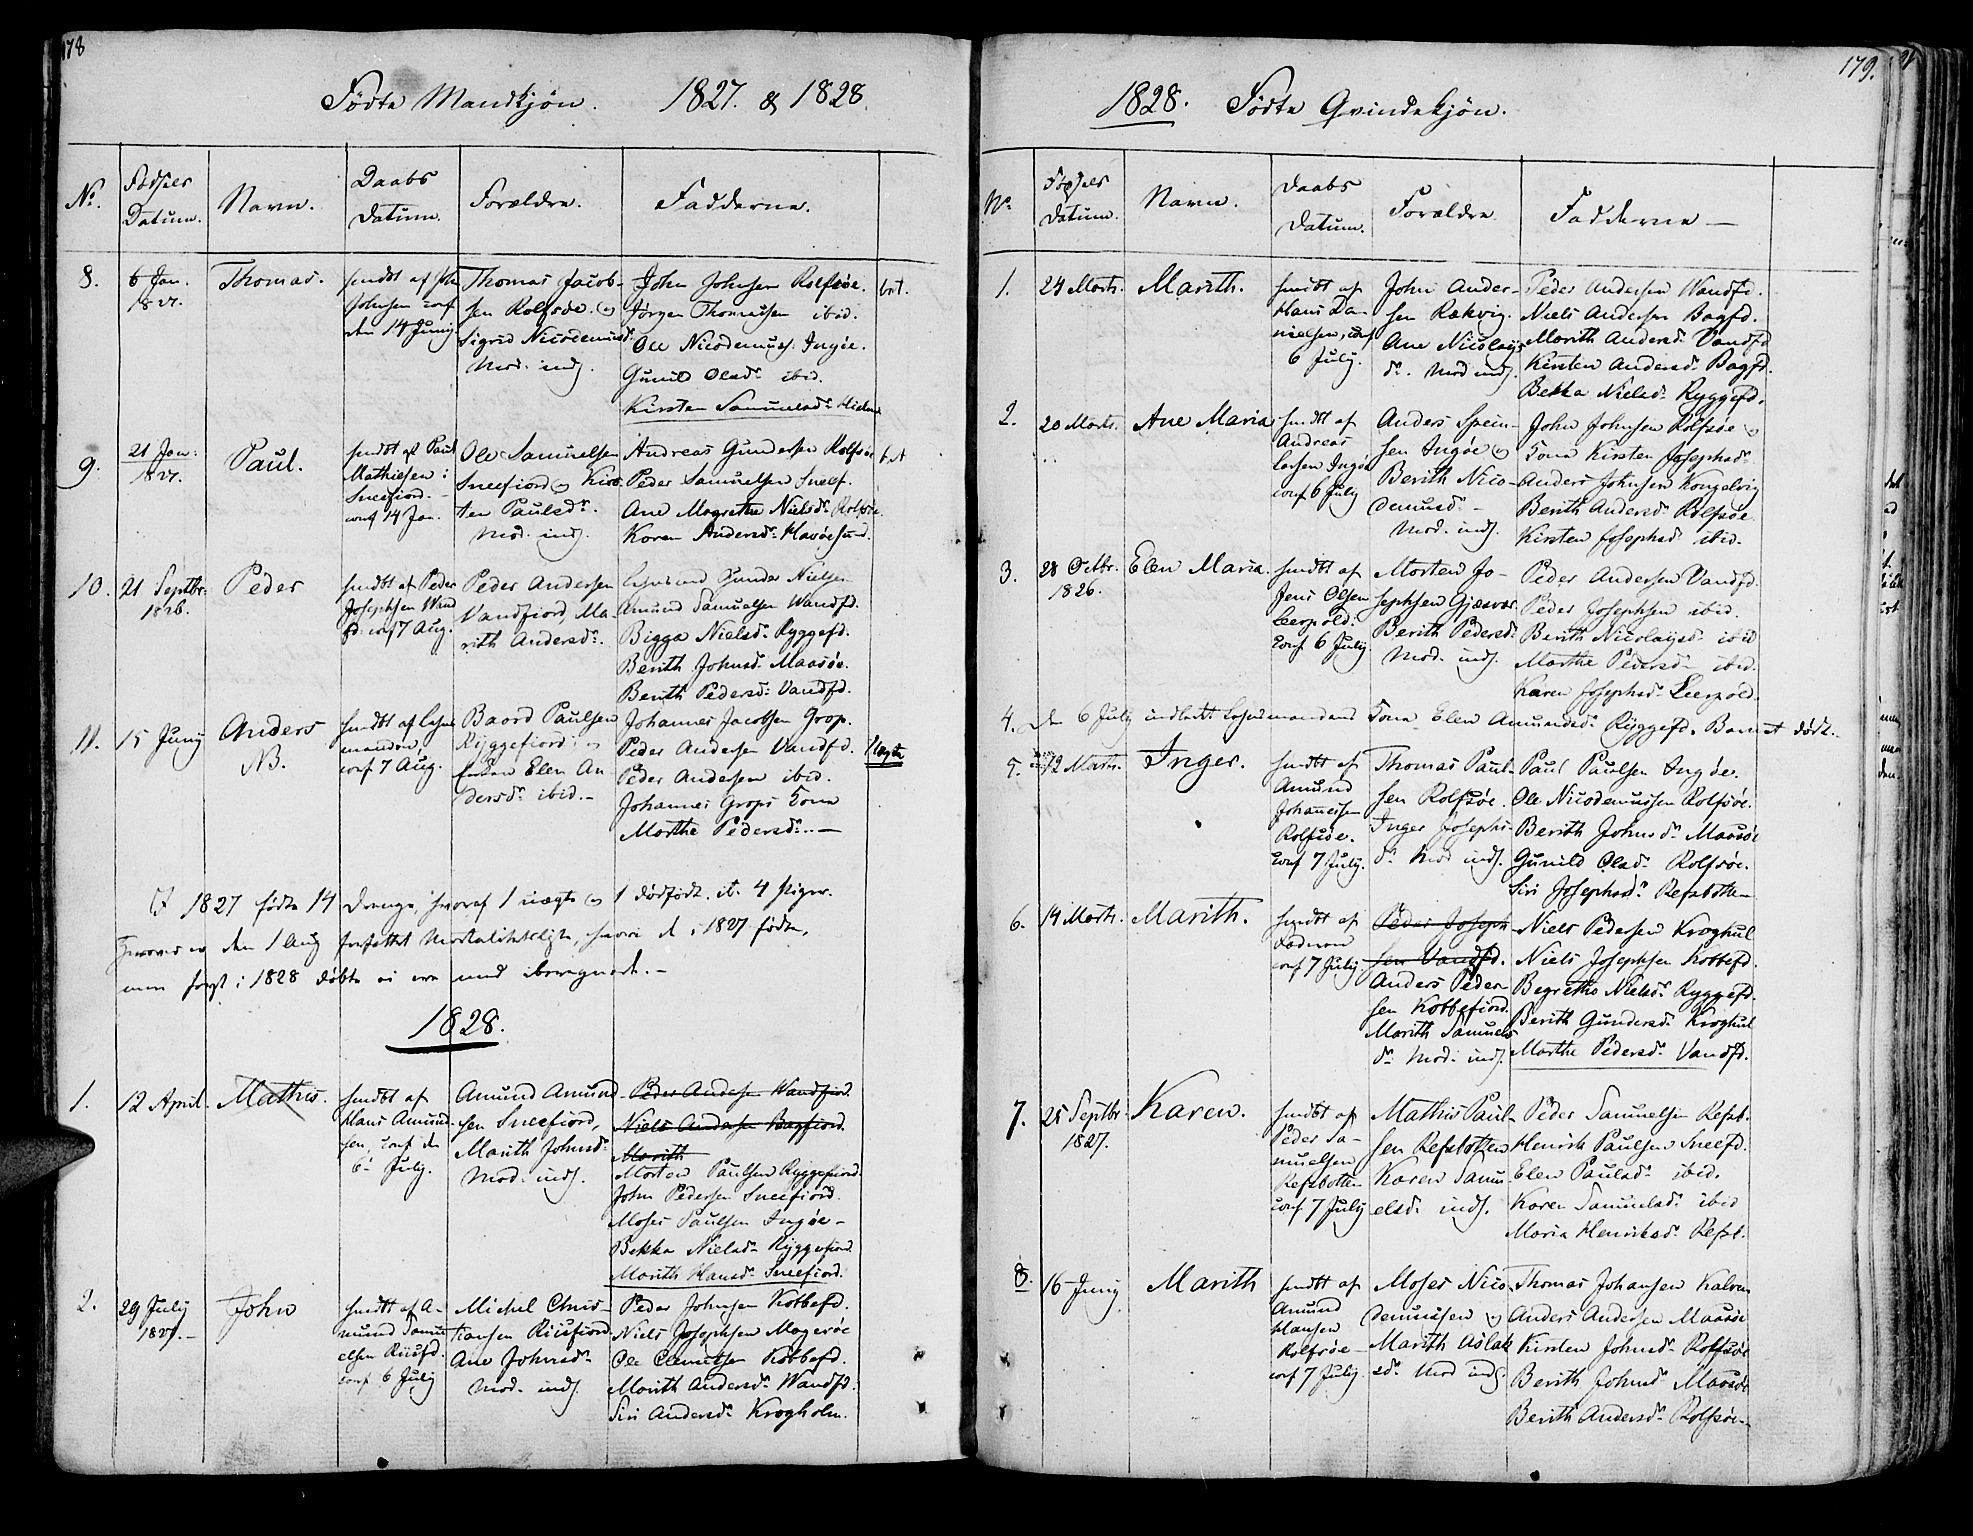 178
Fødte Mandkjøn. 1827. & 1828.
No. Fødsels Datum. Navn. Daabs Datum. Forældre. Fadderne.
8. 6 Jan. 1827. Thomas.
Johnsen conf
den 14 Junij.
Thomas Jacob-
sen Rolfsøe. og
Sigrid Nicodemusd.
Mod. indj.
John Johnsen Rolfsøe.
Jørgen Thomæsen ibid.
Ole Nicodemus: Ingøe.
Gunild Olsdr. ibid.
Kirsten Samuelsdr.
9. 21 Jan: 1827. Paul.
hiemdøbt af Paul
Mathisen i
Sneefiord. -
conf 14 Jan.
Ole Samuelsen
Sneefiord og Kirs-
ten Paulsdr.
Mod. indj.
Andreas Gundersen Rolfsøe
Peder Samuelsen Sneef.
Ane Magrethe Nielsdr. Rolfsøe.
Karen Andersdr. Havøesund.
10. 21 Septbr. 1826. Peder
hiemdøbt af Peder
Josephsen Wand
fd. conf 7 Aug.
Peder Andersen
Vandfiord, Ma-
rith Andersdr.
Gunder Nielsen
Amund Samuelsen Wandfd.
Bigga Nielsdr. Ryggefd.
Berith Johnsd. Maasøe.
Berith Pedersd: Vandfd.
11. 15 Junij Anders
NB.
hiemdøbt af Lehns-
manden,
conf 7 Aug.
Baard Paulsen
Ryggefiord: og
Enken Elen An
dersdr. ibid. -
Johannes Jacobsen Grop.
Peder Andersen Vandfd.
Peder Andersen ibid.
Johannes Grops Kona
Marthe Pedersdr. -
Uægte
I 1827 fødte 14 Drenge, hvoraf 1 uægte og 1 dødfødt. it. 4 Piger.
Hvorover den 1 Aug forfattet Mortalitetsliste, hvori de i 1827 fødte,
men først i 1828 døbte ei ere med iberegnede. -
1828.
1. 12 April. Mathis.
hiemdøbt af
Hans Amund-
sen, conf den
6- Julij.
Amund Amund-
sen Sneefiord,
Marith Johnsdr.
Mod. indj.
Peder Andersen Wandfiord.
Niels Andersen Bagfiord.
Marith
Morten Paulsen Ryggefiord.
John Pedersen Sneefiord.
Moses Paulsen Ingøe -
Bekka Nielsdr. Ryggefiord.
Marith Hansdr. Sneefiord.
2. 29 Julij 1827. - John
hiemdøbt af A-
mund Samu-
elsen Riisfd.
conf 6 Julij
Michel Chris-
tiansen Riisfiord
Ane Johnsdr.
Mod. indj.
Peder Johnsen Kobbefd.
Niels Josephsen Magerøe
Ole Clemetsen Kobbefd.
Marith Andersdr. Wandfd.
Siri Andersdr. Krogholm.
179.
1828. Fødte Qvindekjøn.
No. Fødsels Datum. Navn. Daabs Datum. Forældre. Fadderne -
1. 24 Marts. Marith.
hiemdøbt af
Hans Da-
nielsen, conf
6 Julij.
John Ander-
sen Rækvig.
Ane Nicolays
dr. Mod indj.
Peder Andersen Wandfd.
Niels Andersen Bagfd.
Marith Andersdr. Vandfd
Kirsten Andersdr. Bagfd.
Bekka Nielsdr. Ryggefd.
2. 20 Marts. Ane Maria
hiemdøbt af
Andreas
Larsen Ingøe
conf 6 Julij
Anders Spein-
sen Ingøe og
Berith Nico-
demusd. -
Mod. indj.
John Johnsen Rolfsøe og
Kona Kirsten Josephsdr.
Anders Johnsen Kongelvig
Berith Andersdr. Rolfsøe
Kirsten Josephsdr ibid.
3. 28 Octbr. 1826. Elen Maria.
hiemdøbt af
Jens Olsen
Leerpold.
conf 6 Julij.
Morten Jo-
sephsen Gjæsvær
Berith Pedersdr.
Mod. indj.
Peder Andersen Vandfd.
Peder Josephsen ibid.
Berith Nicolaysdr. ibid
Marthe Pedersdr ibid.
Karen Josephsdr. Leerpold.
4. Den 6 Julij indledt Lehnsmandens Kona Elen Amundsdr. Ryggefd. Barnet dødt. -
5. 12 Marts. Inger.
hiemdøbt af
Amund
Johannesen
Rolfsøe.
conf 7 Julij.
Thomas Paul-
sen Rolfsøe.
Inger Josephs-
dr. Mod indj.
Paul Paulsen Ingøe.
Ole Nicodemussen Rolfsøe.
Berith Johnsdr. Maasøe
Gunild Olsdr. Rolfsøe.
Siri Josephsdr. Refsbotten
6. 14 Marts. Marith.
hiemdøbt af
Faderen
conf 7 Julij.
Peder Joseph-
sen Vandfd.
Anders Peder-
sen Kobbefiord.
Marith Samuels
dr. Mod. indj.
Niels Pedersen Kroghul
Niels Josephsen Kobbefd.
Begrethe Nielsdr. Ryggefd.
Berith Gundersdr. Kroghul
Marthe Pedersdr. Vandfd.
7. 25 Septbr. 1827. Karen.
hiemdøbt af
Peder Sa-
muelsen
Refsbotten
conf 7 Julij
Mathis Paul-
sen Refsbotten
Karen Samu-
elsdr. indj.
Peder Samuelsen Refsb.
Henrik Paulsen Sneefd.
Elen Paulsdr. ibid.
Karen Samuelsdr. ibid
Maria Henriksdr. Refsb.
8. 16 Junij Marith
hiemdøbt af
Amund
Hansen
Rolfsøe -
conf 7 Julij.
Moses Nico-
demussen og
Marith Aslak
sdr. Mod indj.
Thomas Johansen Kalven
Anders Andersen Maasøe
Kirsten Johnsdr. Rolfsøe
Berith Johnsdr. Maasøe
Berith Andersdr. Rolfsøe -